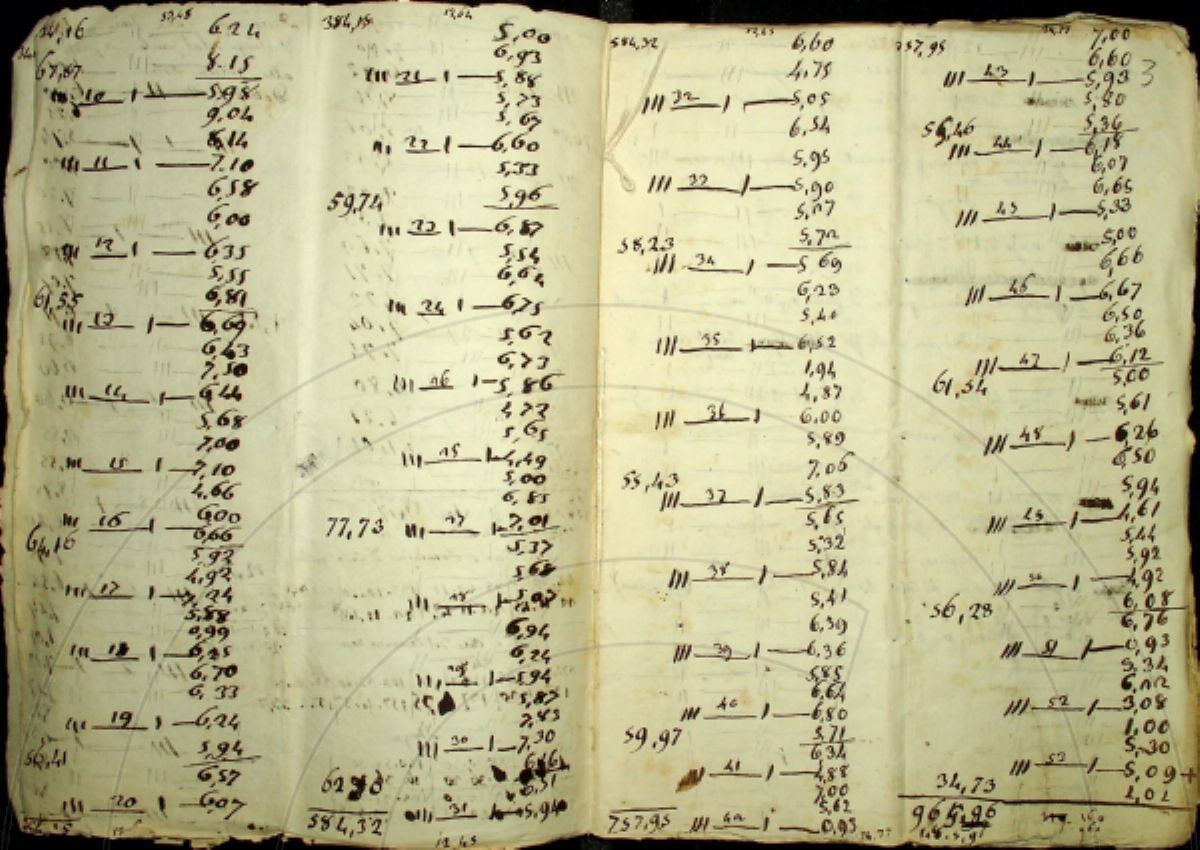 6,24
67,87 8,15
10 5,98
9,04
8,14
11 7,10
6,58
6,00
12 6,35
5,55
61,55 6,81
13 6,69
6,43
7,50
14
5,68
7,00
15 7,10
4,66
16 6,00
6,66
5,92
4,92
17
5,88
0,99
18 6,25
6,70
6,33
19 6,24
5,94
6,57
20 6,07
384,15
5,00
6,93
21 5,88
5,73
5,67
22 6,60
5,33
59,74 5,96
23 6,87
5,54
6,64
24 6,75
5,62
6,73
16 5,86
4,73
5,65
15 4,49
5,00
6,85
77,73 7,01
5,37
5,68
6,94
6,24
5,94
5,87
7,83
30 7,30
584,32 31 5,94
12,45
584,32 6,60
4,75
III 32 I 5,05
6,54
5,95
III 33 I 5,90
5,17
58,23 5,72
III 34 I 5,69
6,23
5,40
III 35 I 6,52
1,94
4,87
III 36 I 6,00
5,89
7,06
55,43
III 37 I 5,83
5,65
5,32
III 38 I 5,84
5,41
6,39
III 39 I 6,36
5,85
6,64
III 40 I 6,80
59,97 5,71
6,34
III 41 I 4,88
7,00
5,62
757,95 III 42 I 0,95
757,95 7,00
6,60
III 43 I 5,93
3
5,80
56,46 5,36
III 44 I 6,18
6,07
6,65
III 45 I 5,33
5,00
6,66
III 46 I 6,67
6,50
6,36
III 47 I 6,12
61,54 5,00
5,61
III 48 I 6,26
6,50
5,94
III I 4,61
5,44
5,92
III 50 I 4,92
56,28 6,08
6,76
III 51 I 0,93
5,34
6,02
III 52 I 3,08
1,00
5,30
III 53 I 5,09
34,73
965,96